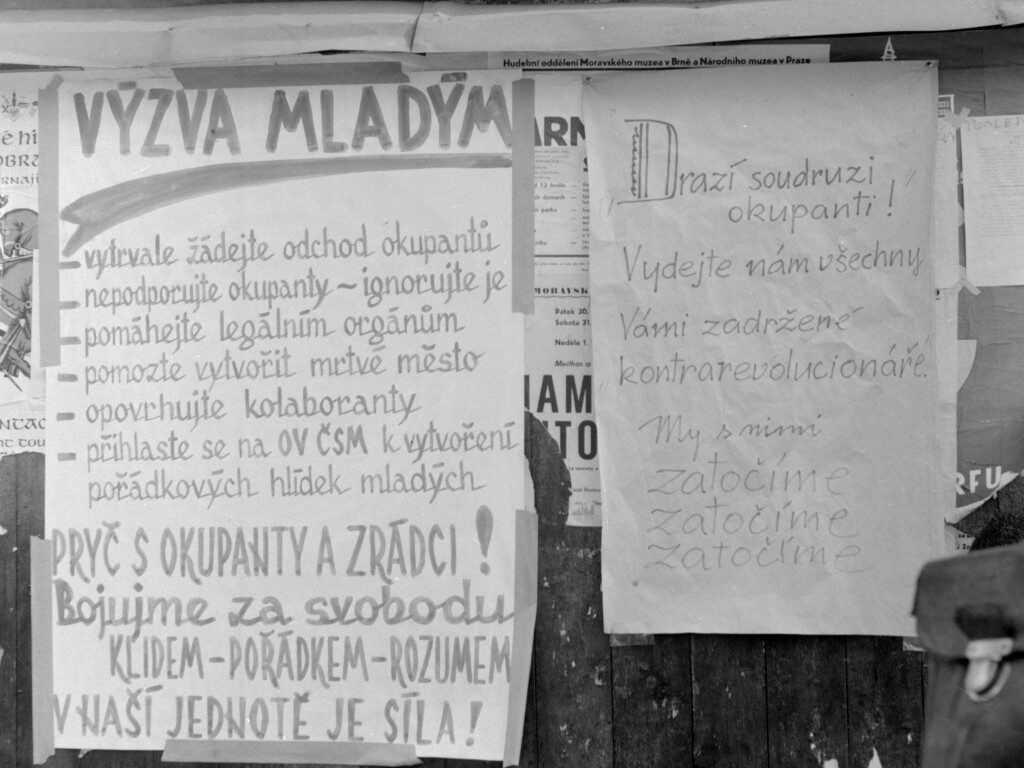 VÝZVA MLADÝM
- vytrvale žádejte odchod okupantů
- nepodporujte okupanty ~ ignorujte je
- pomáhejte legálním orgánům
- pomozte vytvořit mrtvé město
- opovrhujte kolaboranty
- přihlaste se na OV ČSM k vytvoření
pořádkových hlídek mladých
PRYČ S OKUPANTY A ZRÁDCI!
Bojujme za svobodu
KLIDEM - POŘÁDKEM - ROZUMEM
V NAŠÍ JEDNOTĚ JE SÍLA!
Hudební oddělení Moravského muzea v Brně a Národního muzea v Praze
MORAVSK
Pátek 30.
Sobota 31
Neděle 1.
Meilhac a
"Drazí soudruzi
okupanti!"
Vydejte nám všechny
Vámi zadržené
"kontrarevolucionáře."
My s nimi
zatočíme
zatočíme
zatočíme
RFU